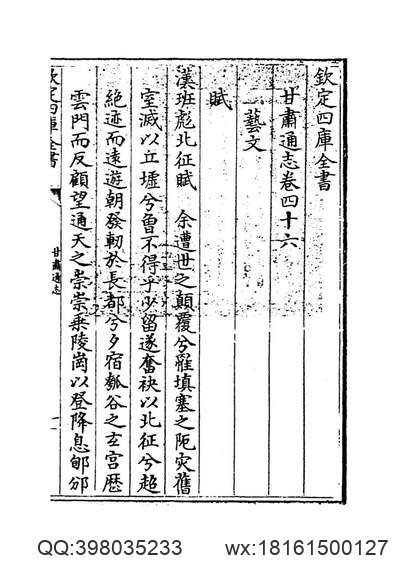 欽定四庫全書
甘肅通志卷四十六
藝文
賦
漢班彪北征賦 余遭世之顛覆兮罹填塞之阨災舊
室滅以丘墟兮曾不得乎少留遂奮袂以北征兮超
絶迹而遠遊朝發軔於長都兮夕宿瓠谷之玄宫歴
雲門而反顧望通天之崇崇乗陵崗以登降息郇邠
欽定四庫全書
甘肅通志
一
QQ:398035233
wx:18161500127